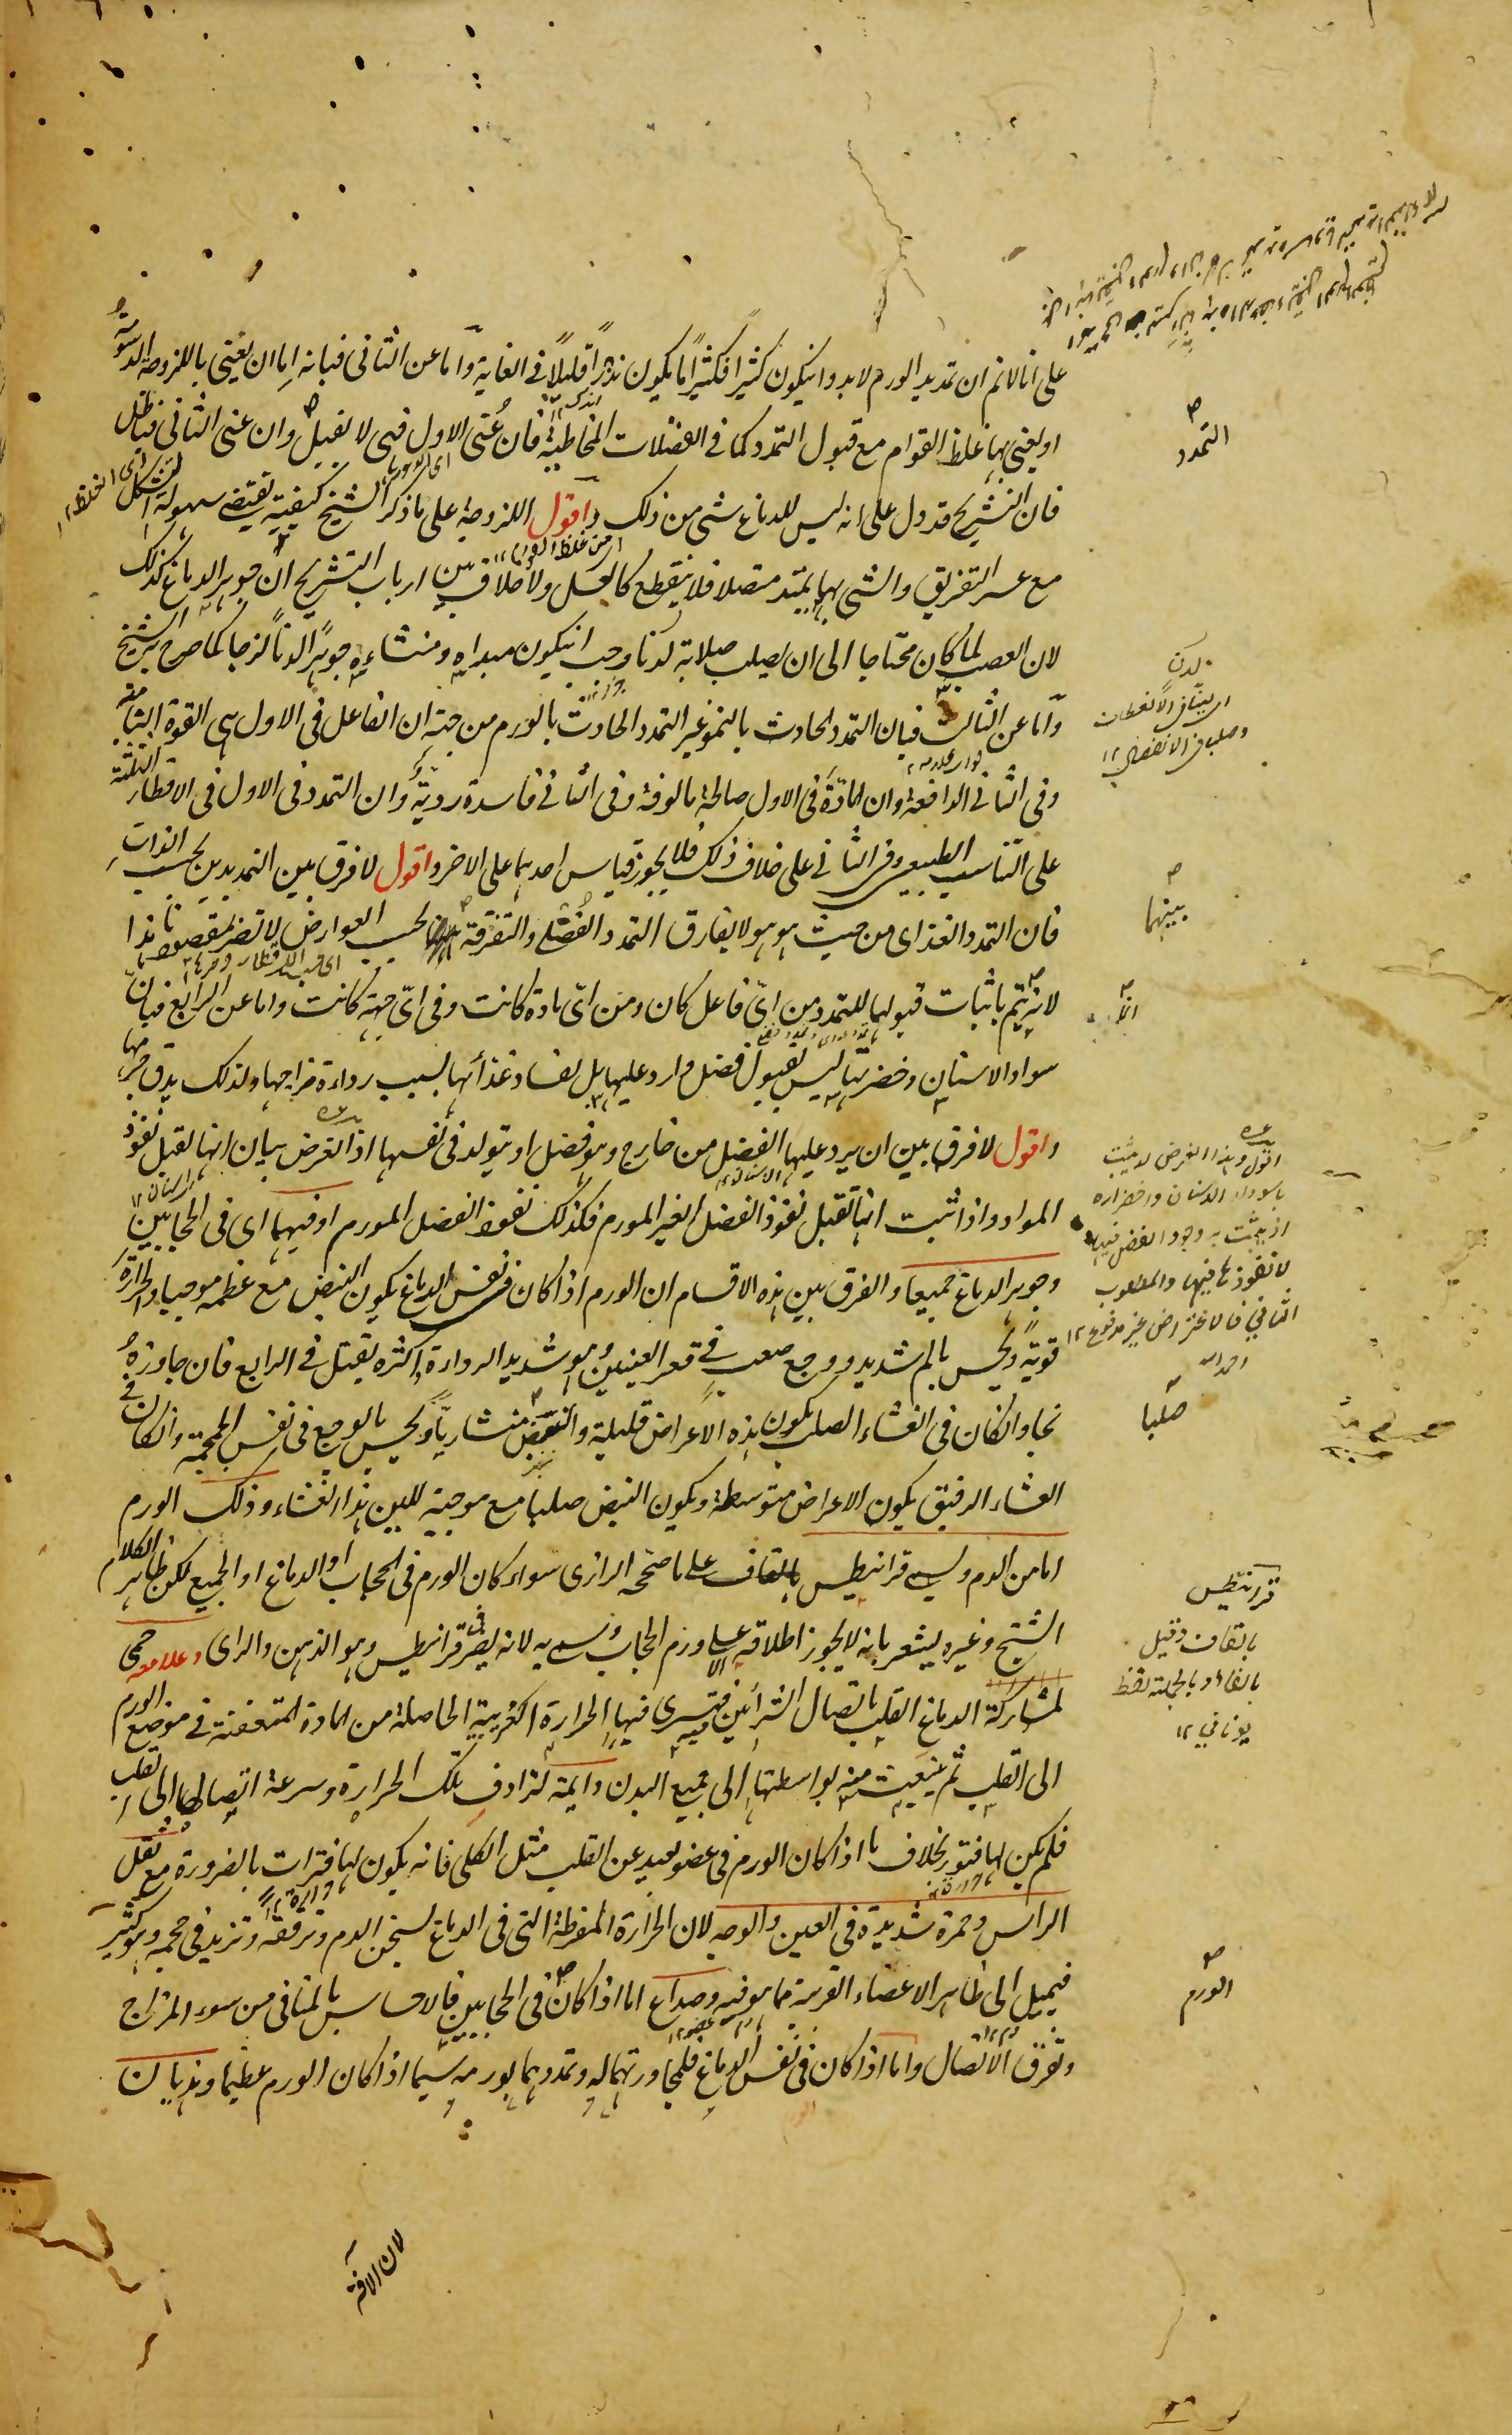 على انا لانم ان تمديد الورم لابد وان يكون كثيرا فكثيرا ما يكون نذرا قليلا في الغاية واما عن الثاني فبانه اما ان يعني باللزوجة الدسومة
او يعني بها غلظ القوام مع قبول التمدد كما في الفضلات المخاطية فان عنى الاول فهي لا تقبل وان عنى الثاني فباطل
فان التشريح قد دل على انه ليس للدماغ شي من ذلك واقول اللزوجة على ما ذكر الشيخ كيفية يقتضي سهولة التشكل
مع عسر التفريق والشي بها يمتد متصلا فلا ينقطع كالعسل ولا خلاف بين ارباب التشريح ان جوهر الدماغ كذلك
لان العصب لما كان محتاجا الى ان يصلب صلابة لدنا وجب ان يكون مبداه ومنشاءه جوهرا لدنا لزجا كما صرح به الشيخ
واما عن الثالث فبان التمدد الحادث بالنمو غير التمدد الحادث بالورم من جهة ان الفاعل في الاول هي القوة النامية
وفي الثاني الدافعة وان المادة في الاول صالحة مالوفة وفي الثاني فاسدة ردية وان التمدد في الاول في الاقطار الثلثة
على التناسب الطبيعي وفي الثاني على خلاف ذلك فلا يجوز قياس احدهما على الاخر واقول لا فرق بين التمديدين بحسب الذات
فان التمدد الغذاى من حيث هو هو لا يفارق التمدد الفضلي والتفرقة بحسب العوارض لا تضر بمقصودنا هذا
لانه يتم باثبات قبولها للتمدد من اي فاعل كان ومن اي مادة كانت وفي اي جهة كانت واما عن الرابع فبان
سواد الاسنان وخضرتها ليس لقبول فضل وارد عليها بل لفساد غذائها بسبب رداءة مزاجها ولذلك يدق جرمها
واقول لا فرق بين ان يرد عليها الفضل من خارج وهو فضل او يتولد في نفسها اذ الغرض بيان انها تقبل نفوذ
المواد واذا ثبت انها تقبل نفوذ الفضل الغير المورم فكذلك نفوذ الفضل المورم او فيهما اى في الحجابين
وجوهر الدماغ جميعا والفرق بين هذه الاقسام ان الورم اذا كان في نفس الدماغ يكون النبض مع عظمه موجيا والحرارة
قوية ويحس بالم شديد ووجع صعب في قعر العينين وهو شديد الرداءة واكثره يقتل في الرابع فان جاوزه
نجا وان كان في الغشاء الصلب يكون هذه الاعراض قليلة والنبض منشاريا ويحس بالوجع في نفس الجمجمة وان كان في
الغشاء الرقيق يكون الاعراض متوسطة ويكون النبض صلبا مع موجية للين هذا الغشاء وذلك الورم
اما من الدم ويسمى قرانيطس بالقاف على ما صححه الرازى سواء كان الورم في الحجاب او الدماغ او الجميع لكن ظاهر الكلام
الشيخ وغيره يشعر بانه لا يجوز اطلاقه الا على ورم الحجاب وسمى به لانه يضر في قرانيطس وهو الذهن والراى وعلامته حمى
لمشاركة الدماغ القلب باتصال الشرائين فتسرى فيها الحرارة الغريبة الحاصلة من المادة المتعفنة في موضع الورم
الى القلب ثم ينبعث منه بواسطتها الى جميع البدن دايمة لترادف تلك الحرارة وسرعة اتصالها الى القلب
فلم يكن لها فتور بخلاف ما اذا كان الورم في عضو بعيد عن القلب مثل الكلى فانه يكون لها فترات بالضرورة مع ثقل
الراس وحمرة شديدة في العين والوجه لان الحرارة المفرطة التي في الدماغ تسخن الدم وترققه وتزيد في حجمه وهو كثير
فيميل الى ظاهر الاعضاء القريبة مما هو فيه وصداع اما اذا كان في الحجابين فالاحساس بالمنافي من سوء المزاج
وتفرق الاتصال واما اذا كان في نفس الدماغ فلمجاورتهما له وتمددهما بورمه سيما اذا كان الورم عظيما وهذيان
لان الافة
التمدد
لدن
بينهما
انه
اقول وهذا الغرض لا يثبت
باسوداد الاسنان واخضراره
اذ يثبت به وجود الفضل فيها
لا نفوذها فيها والمطلوب
الثاني فالاعتراض غير مدفوع ١٢
صلبا
قرانيطس
بالقاف وقيل
بالفاء وبالجملة لفظ
يوناني ١٢
الورم